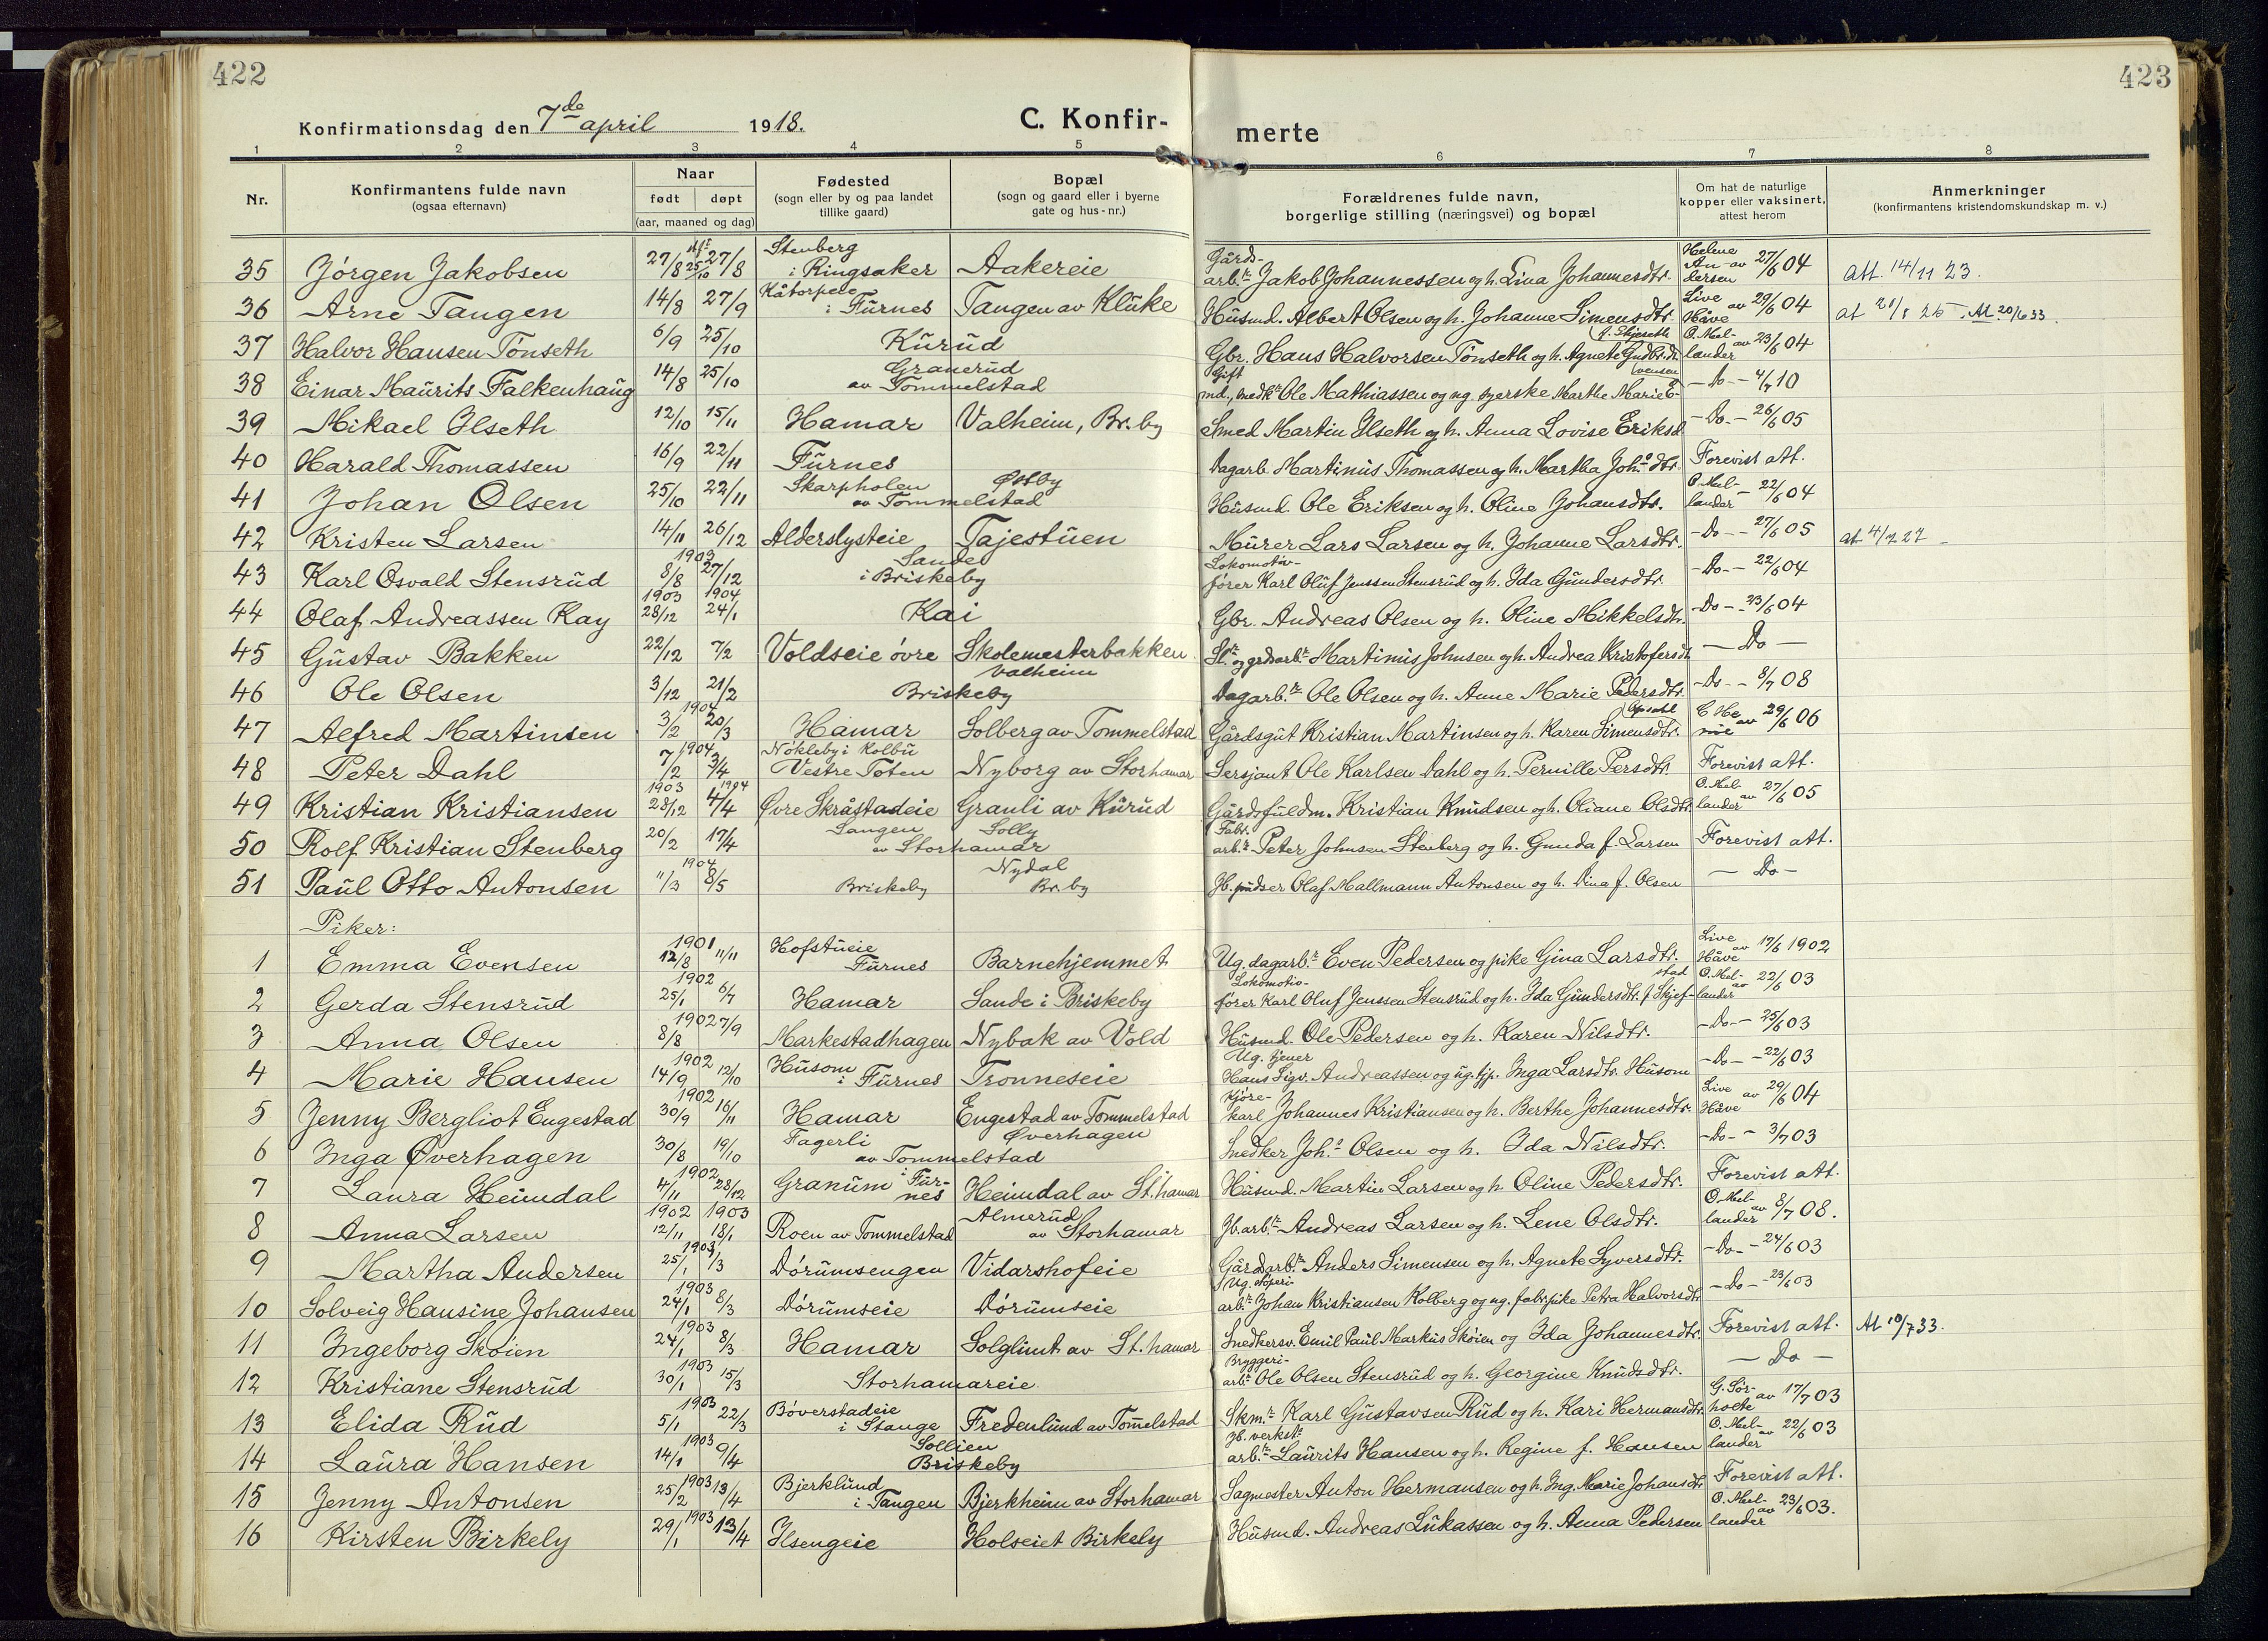 422
423
Konfirmationsdag den 7de april 1918.
C. Konfir-
merte
1 2 3 4 5 6 7 8
Nr.
Konfirmantens fulde navn
(ogsaa efternavn)
Naar
født døpt
(aar, maaned og dag)
Fødested
(sogn eller by og paa landet
tillike gaard)
Bopæl
(sogn og gaard eller i byerne
gate og hus-nr.)
Forældrenes fulde navn,
borgerlige stilling (næringsvei) og bopæl
Om hat de naturlige
kopper eller vaksinert,
attest herom
Anmerkninger
(konfirmantens kristendomskundskap m. v.)
35 Jörgen Jakobsen 27/8 25/10 27/8 Stenberg i Ringsaker Aakereie Gårdarb.r Jakob Johannessen og h. Lina Johannesdtr. Helene Andersen av 27/6 04 Att. 14/11 23.
36 Arne Tangen 14/8 27/9 i Fŭrnes Tangen av Klŭke Hŭsmd. Albert Olsen og h. Johanne Simensdtr. Live Håve av 29/6 04 at 21/8 25 - At. 20/6 33.
37 Halvor Hansen Tönseth 6/9 25/10 Kŭrŭd Gbr. Hans Halvorsen Tönseth og h. Agnete Gudbr.dt. O. Mellander av 23/6 04
38 Einar Maŭrits Falkenhaŭg 14/8 25/10 Granerŭd av Tommelstad Gift md., snedkr Ole Mathiassen og ug. syerske Marthe Marie Evensen - Do - - 4/7 10
39 Mikael Ilseth 12/10 15/11 Hamar Valheim, Br.by Smed Martin Ilseth og h. Anna Lovise Eriksd. - Do. - 26/6 05
40 Harald Thomassen 16/9 22/11 Fŭrnes Dagarb. Martinŭs Thomassen og h. Martha Joh.s dtr. Forevist att.
41 Johan Olsen 25/10 22/11 Skarpholen Østby av Tommelstad Hŭsmd. Ole Eriksen og h. Oline Johansdtr. O. Mellander - 22/6 04
42 Kristen Larsen 14/11 26/12 Alderslysteie Tajestŭen Mŭrer Lars Larsen og h. Johanne Larsdtr. - Do - - 27/6 05 at 4/7 27 -
43 Karl Osvald Stensrŭd 1903 8/8 27/12 Sande i Briskeby Lokomotivfører Karl Olŭf Jenssen Stensrŭd og h. Ida Gŭndersdtr. - Do - - 22/6 04
44 Olaf Andreassen Kay 1903 28/12 1904 24/1 Kai Gbr. Andreas Olsen og h. Oline Mikkelsdtr. - Do - - 23/6 04
45 Gŭstav Bakken 22/12 7/2 Voldseie övre Skolemesterbakken St.r og grdsarb.r Martinŭs Johnsen og h. Andrea Kristofersdt. - Do -
46 Ole Olsen 3/12 21/2 Valheim Briskeby Dagarb.r Ole Olsen og h. Anne Marie Pedersdtr. - Do - - 8/7 08
47 Alfred Martinsen 1904 3/2 20/3 Hamar Solberg av Tommelstad Gårdsgŭt Kristian Martinsen og h. Karen Simensdtr. Opsahl av 29/6 06
48 Peter Dahl 1904 7/2 3/4 Nökleby i Kolbŭ Vestre Toten Nyborg av Storhamar Sersjant Ole Karlsen Dahl og h. Pernille Persdtr. Forevist att.
49 Kristian Kristiansen 1903 28/12 1904 4/4 Øvre Skråstadeie Granli av Kŭrŭd Gårdsfŭldm. Kristian Knŭdsen og h. Oliane Olsdtr. O. Mellander av 27/6 05
50 Rolf Kristian Stenberg 20/2 17/4 Sangen Solly av Storhamar Fabr. arb.r Peter Johnsen Stenberg og h. Gunda f. Larsen Forevist att.
51 Paŭl Otto Antonsen 1904 11/3 8/5 Briskeby Nydal Br.by H. pŭdser Olaf Mallmann Antonsen og h. Dina f. Olsen - Do -
Piker:
1 Emma Evensen 1901 12/8 11/11 Hofstŭeie Fŭrnes Barnehjemmet Ug. dagarb.r Even Pedersen og pike Gina Larsdtr. Live Håve av 17/6 1902
2 Gerda Stensrŭd 1902 25/1 6/7 Hamar Sande i Briskeby Lokomotivfører Karl Oluf Jenssen Stensrŭd og h. Ida Gŭndersdtr. f. Skjefstad O. Mellander av 22/6 03
3 Anna Olsen 1902 8/8 7/9 Markestadhagen Nybak av Vold Hŭsmd. Ole Pedersen og h. Karen Nilsdtr. - Do - - 25/6 03
4 Marie Hansen 1902 14/9 12/10 Hŭsom i Fŭrnes Tronneseie Ug. tjener Hans Sigv. Andreassen og ug. tjp. Inga Larsdtr. Hŭsom - Do - - 22/6 03
5 Jenny Bergliot Engestad 1902 30/9 16/11 Hamar Engestad av Tommelstad Kjörekarl Johannes Kristiansen og h. Berthe Johannesdtr. Live Håve av 29/6 04
6 Inga Øverhagen 30/8 19/10 Fagerli Øverhagen av Tommelstad Snedker Joh.s Olsen og h. Ida Nilsdtr. - Do - - 3/7 03
7 Laura Heimdal 1902 4/11 28/12 Granŭm i Fŭrnes Heimdal av St.hamar Hŭsmd. Martin Larsen og h. Oline Pedersdtr. Forevist att.
8 Anna Larsen 1902 12/11 1903 18/1 Roen av Tommelstad Almerŭd av Storhamar Jb.arb.r Andreas Larsen og h. Lene Olsdtr. O. Mellander av 8/7 08.
9 Martha Andersen 1903 25/1 1/3 Dörŭmsengen Vidarshofeie Gårdarb.r Anders Simensen og h. Agnete Syversdtr. - Do - - 24/6 03
10 Solveig Hansine Johansen 1903 24/1 8/3 Dörŭmseie Dörŭmseie Ug. støperiarb.r Johan Kristiansen Kolberg og ug. fabr.pike Petra Halvorsdtr. - Do - - 23/6 03
11 Ingeborg Sköien 1903 24/1 8/3 Hamar Solglimt av St.hamar Snedkersv. Emil Paul Markŭs Sköien og Ida Johannesdtr. Forevist att. At 10/7 33.
12 Kristiane Stensrŭd 1903 30/1 15/3 Storhamareie Bryggeriarb.r Ole Olsen Stensrŭd og h. Georgine Knŭdsdtr. - Do -
13 Elida Rŭd 1903 5/1 22/3 Böverstadeie i Stange Fredenlŭnd av Tom̄elstad Skm.r Karl Gŭstavsen Rŭd og h. Kari Hermansdtr. G. Sörholte av 17/7 03
14 Laŭra Hansen 1903 14/1 9/4 Sollien Briskeby Jb. verkst. arb.r Laŭrits Hansen og h. Regine f. Hansen O. Mellander av 22/6 03
15 Jenny Antonsen 1903 25/2 13/4 Bjerklŭnd i Tangen Bjerkheim av Storhamar Sagmester Anton Hermansen og h. Ing. Marie Johansdtr. Forevist att.
16 Kirsten Birkely 1903 29/1 13/4 Ilsengeie Holseiet Birkely Hŭsmd. Andreas Lŭkassen og h. Anna Pedersen O. Mellander av 23/6 03.